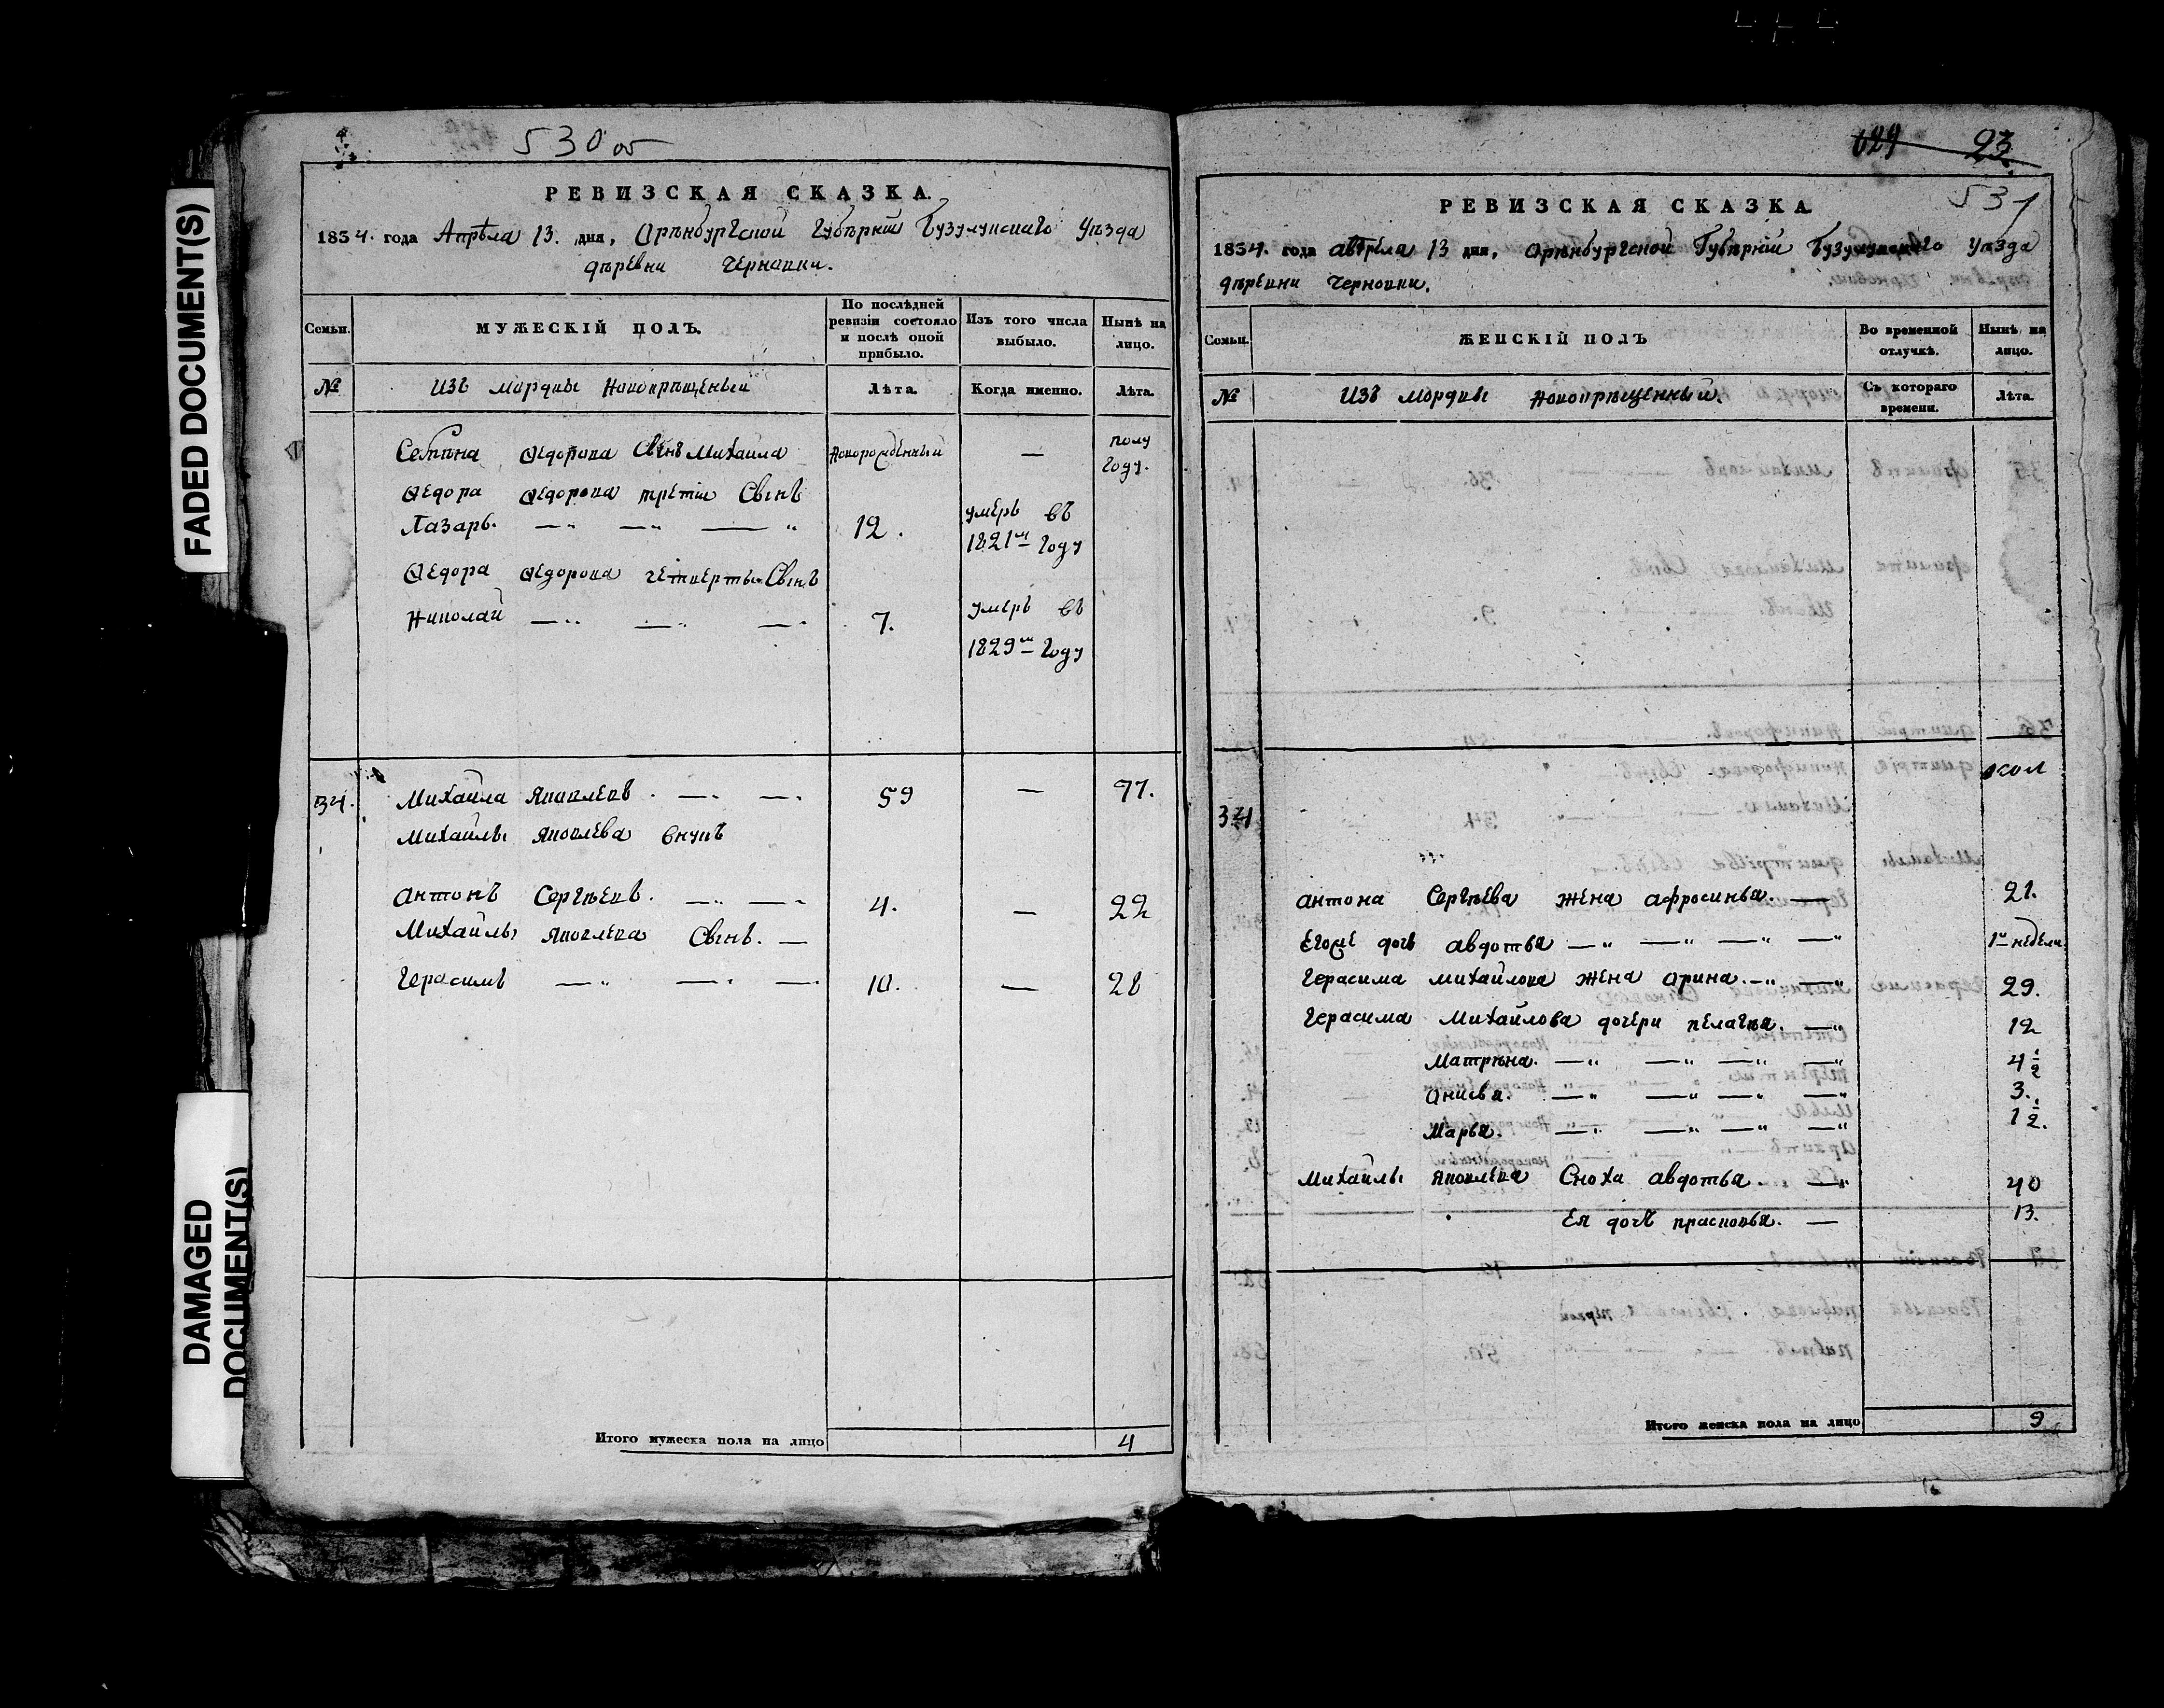 FADED DOCUMENT(S)
DAMAGED
DOCUMENT(S)
530 об
РЕВИЗСКАЯ СКАЗКА.
1834. года Апрѣла 13. дня, Орѣнбургской Губѣрніи Бузулукскаго Уѣзда
дѣревни Черновки.
Семьи.
МУЖЕСКІЙ ПОЛЪ.
По послѣдней ревизіи состояло и послѣ оной прибыло.
Изъ того числа выбыло.
Нынѣ на лицо.
№
изъ мордвы новокрѣщеныи
Лѣта.
Когда именно.
Лѣта.
Ѳедорова Сынъ Михаила Новорожденный —
полу году.
Ѳедора Ѳедорова третіи Сынъ
Лазарь. 12. умеръ въ 1821м году
Ѳедора Ѳедорова четвертыи Сынъ
Николай 7. умеръ въ 1829м году
34. Михайла Яковлевъ. 59 — 97.
Михайлы Яковлева внукъ
Антонъ Сергѣевъ. 4. — 22
Михайлы Яковлева Сынъ. —
Герасимъ 10. — 28
Итого мужеска пола на лицо 4
629 23.
531
РЕВИЗСКАЯ СКАЗКА
1834. года апрѣла 13 дня, Орѣнбургской Губѣрніи Бузулукскаго Уѣзда
дѣревни Черновки.
Семьи.
ЖЕНСКІЙ ПОЛЪ
Во временной отлучкѣ.
Нынѣ на лицо.
№
изъ мордвы новокрѣщенныи.
Съ котораго времени.
Лѣта.
34
антона Сергѣева жена афросинья. — 21.
Егоже дочь авдотья 1н недели.
Герасима михайлова жена Орина. 29.
Герасима Михайлова дочери пелагѣя. 12
Матрѣна. 4 1/2
Онисья. 3.
Марья. 1 1/2.
Михайлы Яковлева Сноха авдотья. 40
Ея дочь прасковья. — 13.
Итого женска пола на лицо 9